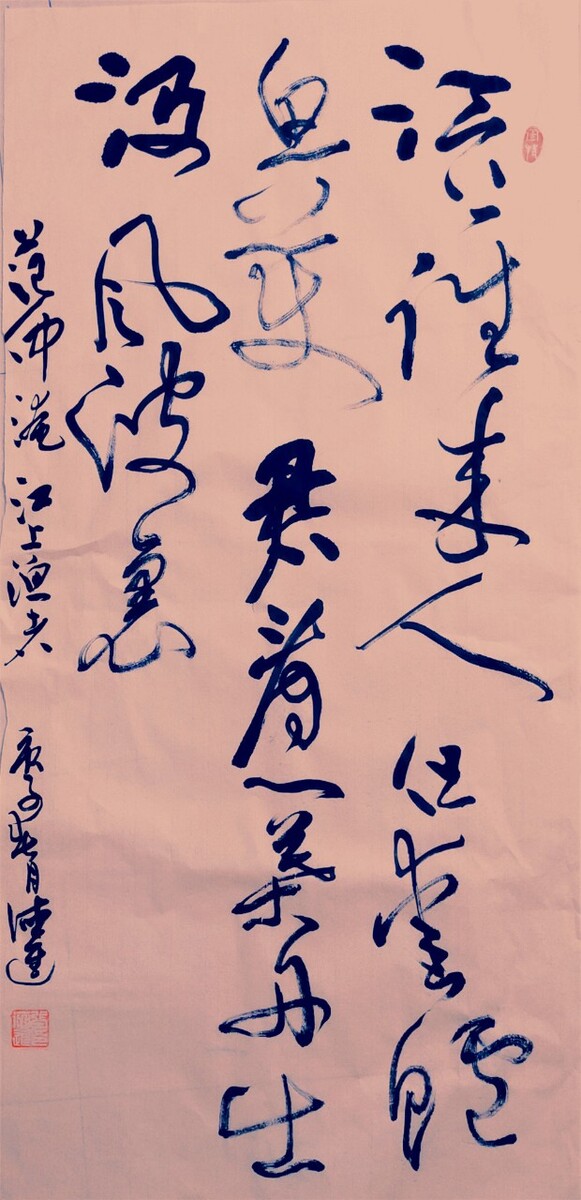 江上往来人但爱鲈
鱼美君看一叶舟出
没风波里
范仲淹江上渔者 庚子春月